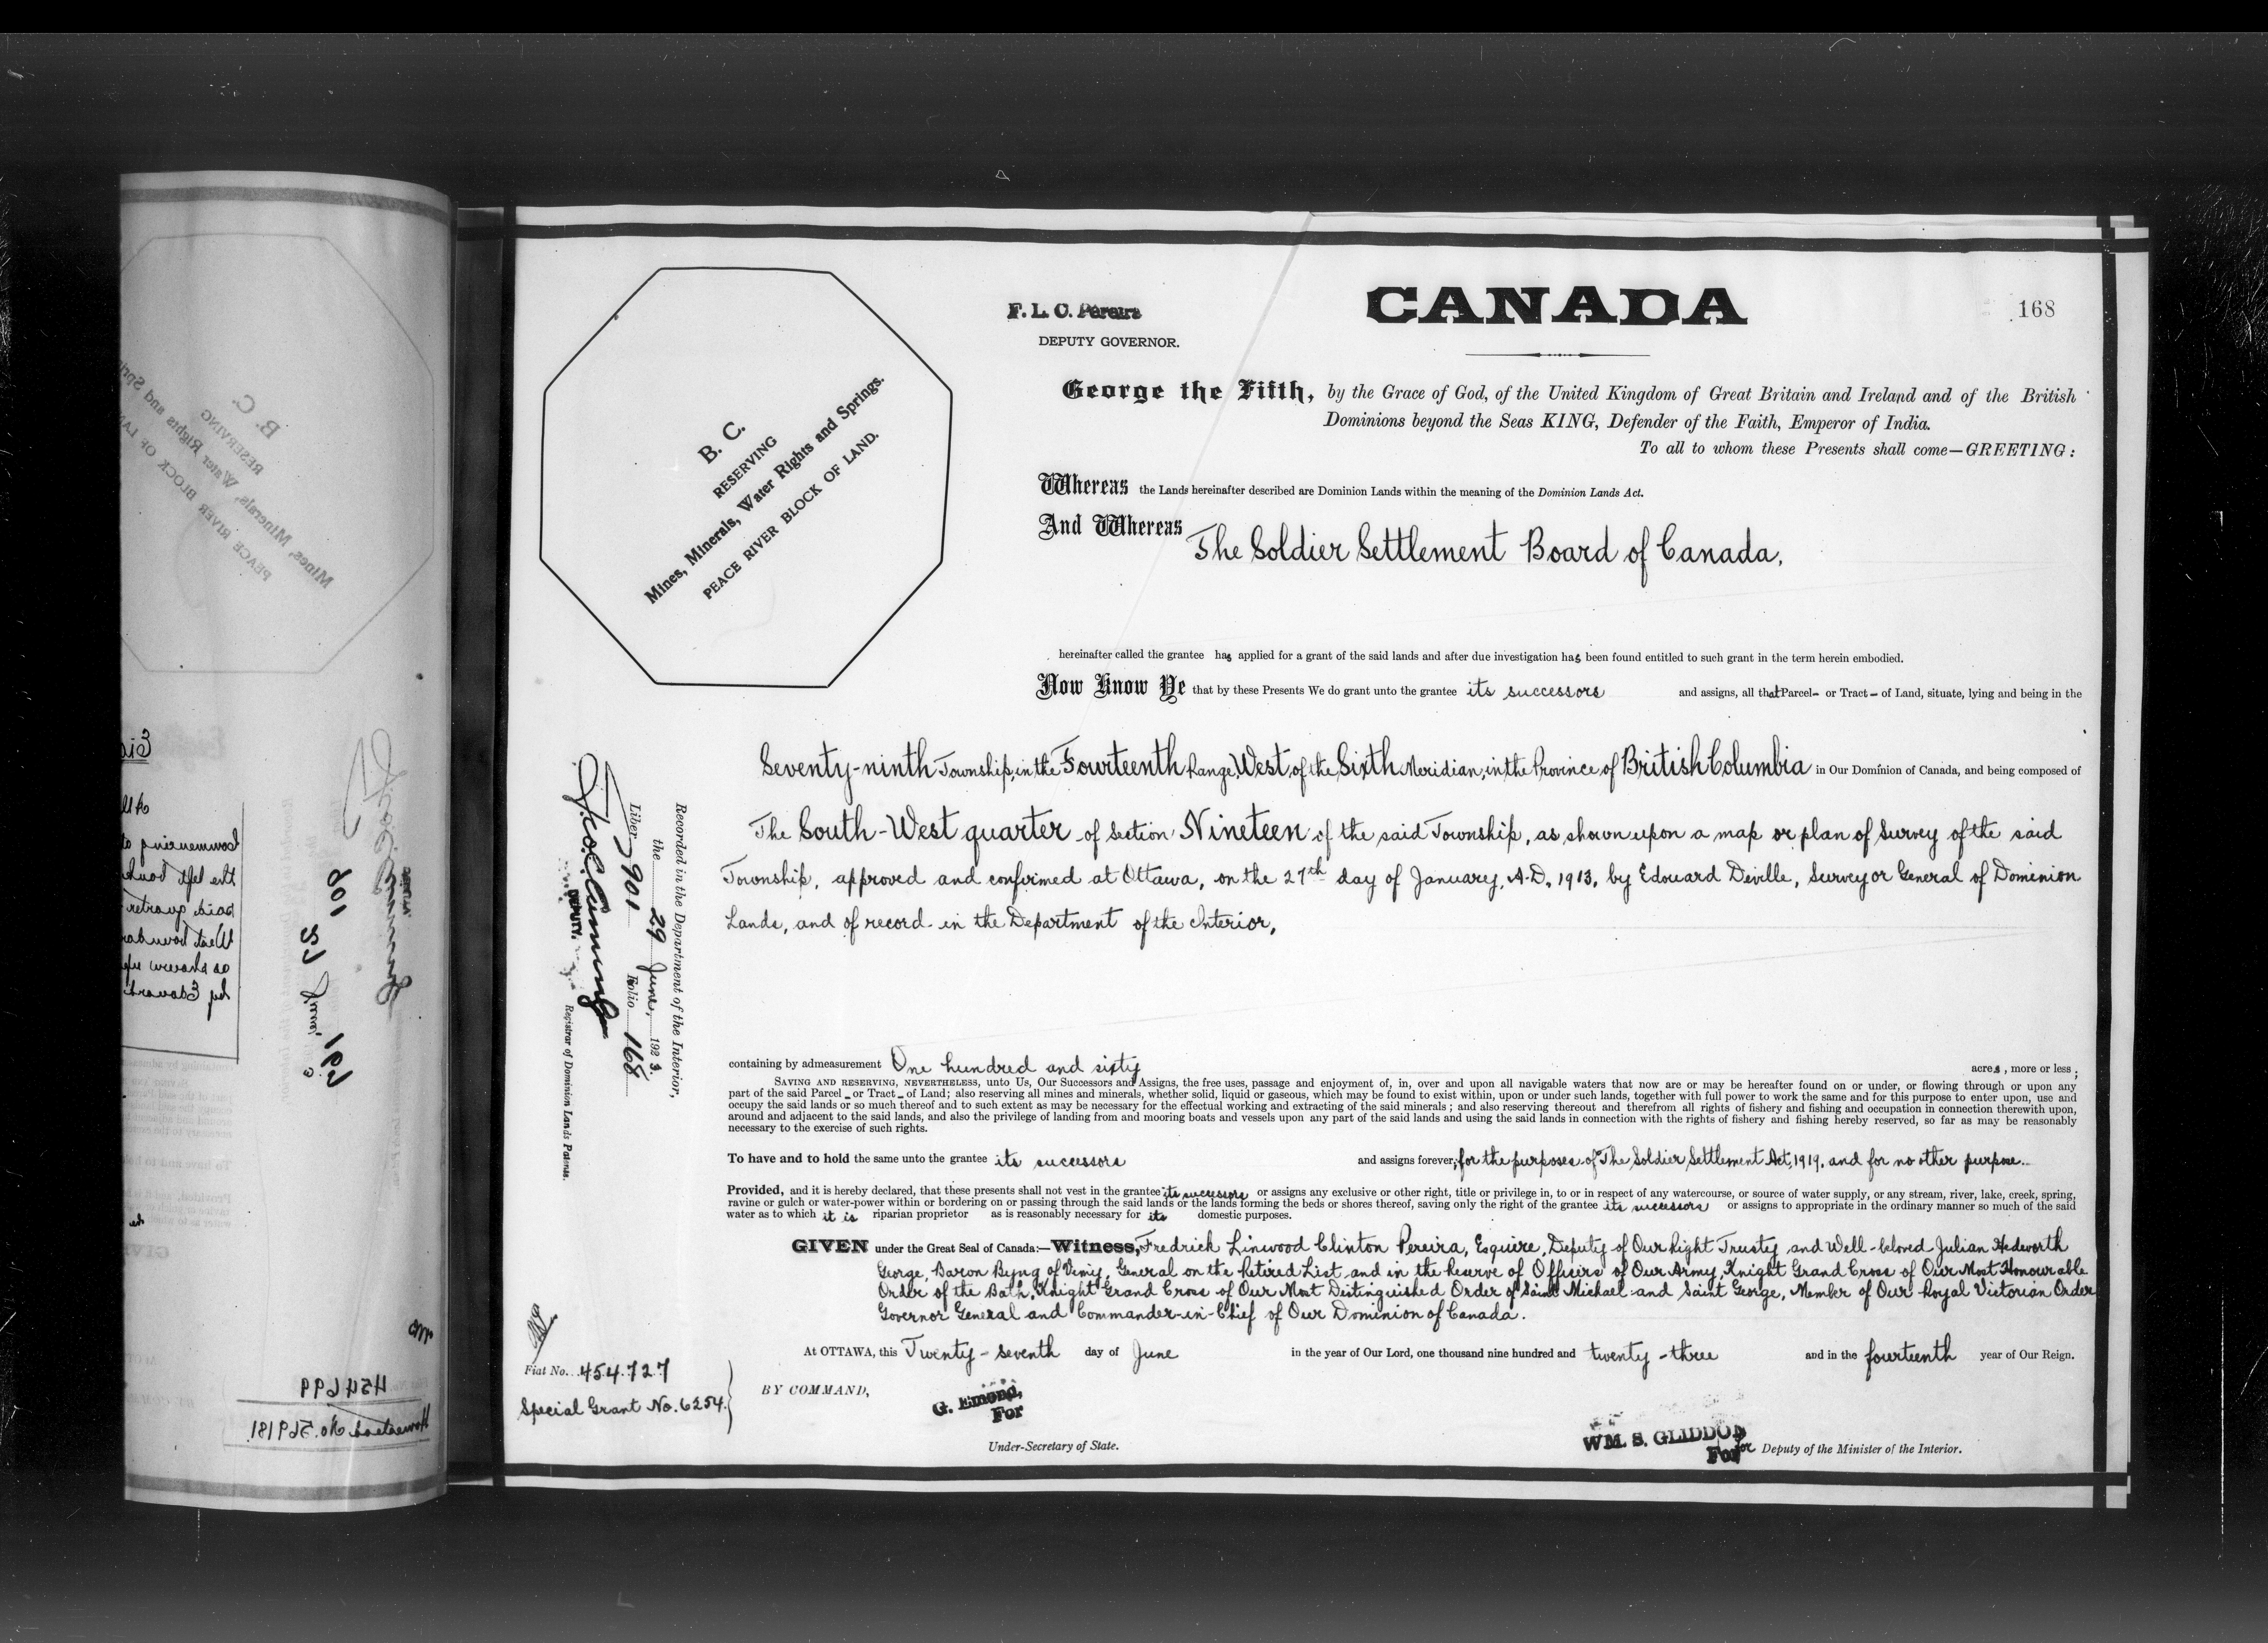 CANADA
168
F. L. C. Pereira
DEPUTY GOVERNOR.
B. C.
RESERVING
Mines, Minerals, Water Rights and Springs.
PEACE RIVER BLOCK OF LAND.
George the Fifth, by the Grace of God, of the United Kingdom of Great Britain and Ireland and of the British
Dominions beyond the Seas KING, Defender of the Faith, Emperor of India.
To all to whom these Presents shall come—GREETING:
Whereas the Lands hereinafter described are Dominion Lands within the meaning of the Dominion Lands Act.
And Whereas The Soldier Settlement Board of Canada,
hereinafter called the grantee has applied for a grant of the said lands and after due investigation has been found entitled to such grant in the term herein embodied.
Now Know Ye that by these Presents We do grant unto the grantee its successors and assigns, all that Parcel- or Tract- of Land, situate, lying and being in the
Seventy-ninth Township, in the Fourteenth Range, West, of the Sixth Meridian, in the Province of British Columbia in Our Dominion of Canada, and being composed of
The South-West quarter of Section Nineteen of the said Township, as shown upon a map or plan of Survey of the said
Township, approved and confirmed at Ottawa, on the 27th day of January, A.D. 1913, by Edouard Deville, Surveyor General of Dominion
Lands, and of record in the Department of the Interior,
containing by admeasurement One hundred and sixty acres, more or less;
SAVING AND RESERVING, NEVERTHELESS, unto Us, Our Successors and Assigns, the free uses, passage and enjoyment of, in, over and upon all navigable waters that now are or may be hereafter found on or under, or flowing through or upon any
part of the said Parcel - or Tract - of Land; also reserving all mines and minerals, whether solid, liquid or gaseous, which may be found to exist within, upon or under such lands, together with full power to work the same and for this purpose to enter upon, use and
occupy the said lands or so much thereof and to such extent as may be necessary for the effectual working and extracting of the said minerals; and also reserving thereout and therefrom all rights of fishery and fishing and occupation in connection therewith upon,
around and adjacent to the said lands, and also the privilege of landing from and mooring boats and vessels upon any part of the said lands and using the said lands in connection with the rights of fishery and fishing hereby reserved, so far as may be reasonably
necessary to the exercise of such rights.
To have and to hold the same unto the grantee its successors and assigns forever, for the purposes of The Soldier Settlement Act, 1919, and for no other purpose.
Provided, and it is hereby declared, that these presents shall not vest in the grantee its successors or assigns any exclusive or other right, title or privilege in, to or in respect of any watercourse, or source of water supply, or any stream, river, lake, creek, spring,
ravine or gulch or water-power within or bordering on or passing through the said lands or the lands forming the beds or shores thereof, saving only the right of the grantee its successors or assigns to appropriate in the ordinary manner so much of the said
water as to which it is riparian proprietor as is reasonably necessary for its domestic purposes.
GIVEN under the Great Seal of Canada:—Witness, Fredrick Linwood Clinton Pereira, Esquire, Deputy of Our Right Trusty and Well-beloved Julian Hedworth
George, Baron Byng of Vimy, General on the Retired List and in the Reserve of Officers of Our Army, Knight Grand Cross of Our Most Honourable
Order of the Bath, Knight Grand Cross of Our Most Distinguished Order of Saint Michael and Saint George, Member of Our Royal Victorian Order
Governor General and Commander-in-Chief of Our Dominion of Canada.
At OTTAWA, this Twenty-seventh day of June in the year of Our Lord, one thousand nine hundred and twenty-three and in the fourteenth year of Our Reign.
BY COMMAND,
G. Emond,
For
Under-Secretary of State.
WM. S. GLIDDON
For for Deputy of the Minister of the Interior.
Recorded in the Department of the Interior,
the 29 June, 1923
Liber 901 Folio 168
DEPUTY. Registrar of Dominion Lands Patents.
Fiat No. 454727
Special Grant No. 6254.
454699
Homestead No. 569181